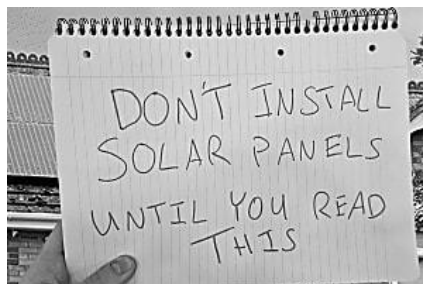 DON'T INSTALL
SOLAR PANELS
UNTIL YOU READ
THIS